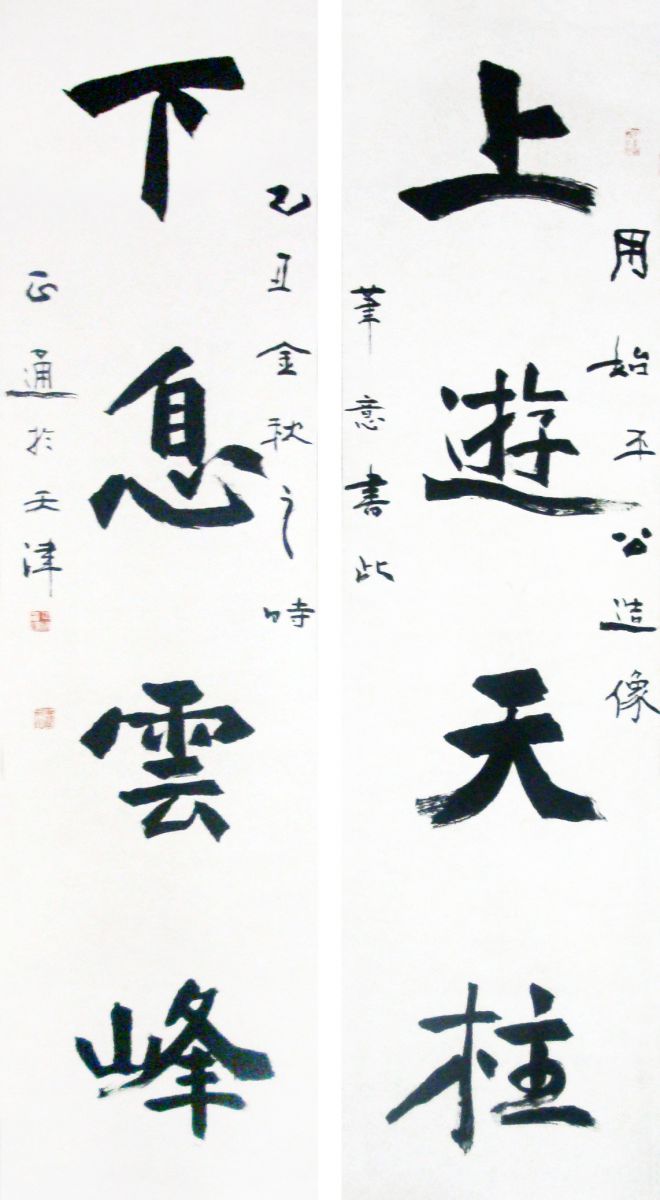 用始平公造像
上遊天柱
筆意書此
乙丑金秋之時
下息雲峰
正通於天津